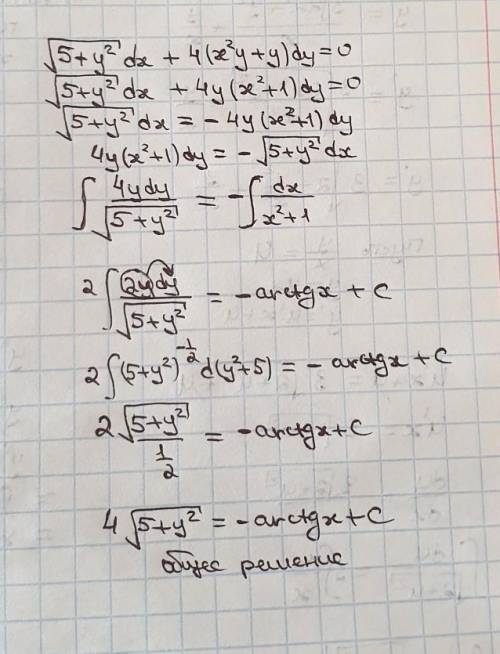 √(5+y²) dx + 4(x²y+y)dy=0
√(5+y²) dx + 4y(x²+1)dy=0
√(5+y²) dx = -4y(x²+1)dy
4y(x²+1)dy = -√(5+y²) dx
∫ 4ydy/√(5+y²) = -∫ dx/(x²+1)
2∫ 2ydy/√(5+y²) = -arctgx + C
2∫(5+y²)^(-1/2) d(y²+5) = -arctgx + C
2 √(5+y²)/(1/2) = -arctgx+C
4√(5+y²) = -arctgx + C
общее решение